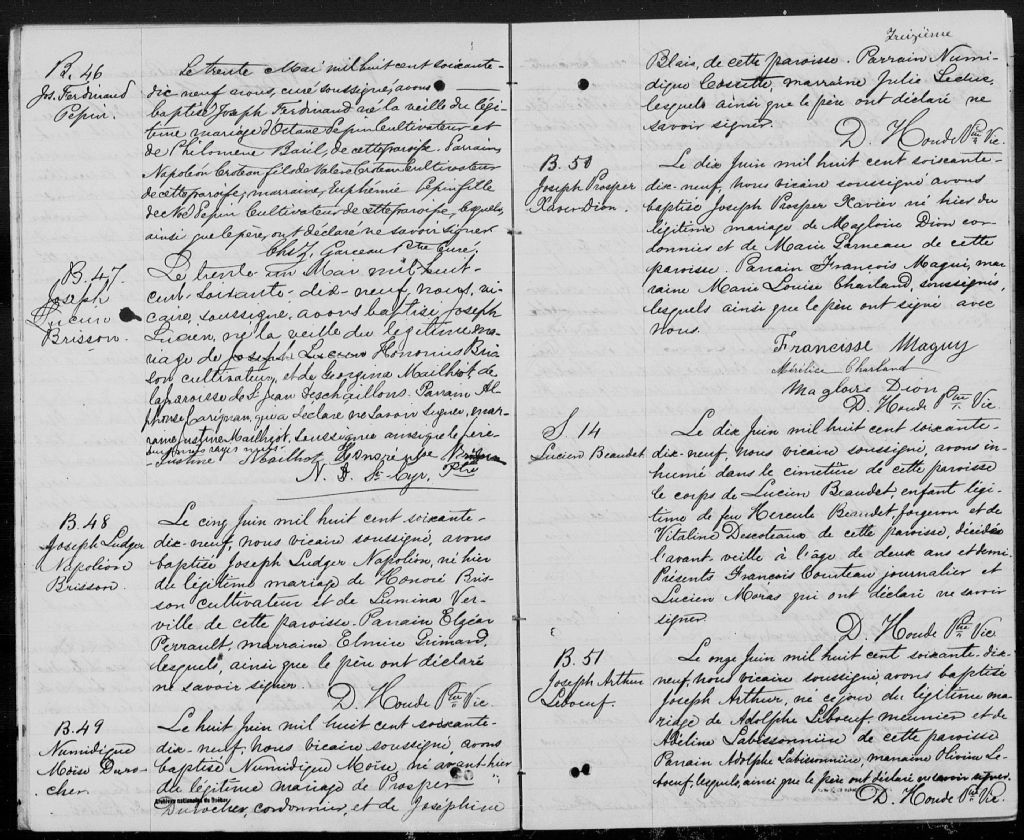 B. 46
Jos. Ferdinand
Pepin.
Le trente Mai mil huit cent soixante-
dix-neuf, nous, curé soussigné, avons
baptisé Joseph Ferdinand né la veille du légi-
time mariage d'Octave Pepin Cultivateur et
de Philomène Baril, de cette paroisse. Parrain,
Napoléon Croteau fils de Croteau Cultivateur
de cette paroisse, marraine, Euphémie Pepin fille
de Noé Pepin Cultivateur de cette paroisse, lesquels,
ainsi que le père, ont déclaré ne savoir signer
Chs Z. Garceau Ptre Curé.
B. 47.
Joseph
Lucien
Brisson.
Le trente un Mai mil huit-
cent-soixante-dix-neuf, nous, vi-
caire, soussigné, avons baptisé Joseph
Lucien, né la veille du légitime ma-
riage de Joseph Lucien Honorius Bris-
son cultivateur, et de Georgina Mailhot de
la paroisse de St Jean Deschaillons. Parrain Al-
phonse Carignan, qui a déclaré ne savoir signer, mar-
raine Justine Mailhot, soussignée ainsi que le père.
rayés nuls
Justine Mailhot
N. St-Cyr, Ptre
B. 48
Joseph Ludger
Napoléon
Brisson.
Le cinq Juin mil huit cent soixante-
dix-neuf, nous vicaire soussigné, avons
baptisé Joseph Ludger Napoléon, né hier
du légitime mariage de Honoré Bris-
son cultivateur et de Lumina Ver-
ville de cette paroisse. Parrain Elgéar
Perrault, marraine Elmire Grimard,
lesquels, ainsi que le père ont déclaré
ne savoir signer.
D. Houde Ptre Vic.
B. 49
Numidique
Moïse Duro-
cher.
Le huit Juin mil huit cent soixante-
dix-neuf, nous vicaire soussigné, avons
baptisé Numidique Moïse, né avant hier
du légitime mariage de Prosper
Durocher, cordonnier, et de Joséphine
Archives nationales du Québec
Treizième
Blais, de cette paroisse. Parrain Numi-
dique Cossette, marraine Julie Leclerc,
lesquels ainsi que le père ont déclaré ne
savoir signer.
D. Houde Ptre Vic.
B. 50
Joseph Prosper
Xavier Dion.
Le dix Juin mil huit cent soixante-
dix-neuf, nous vicaire soussigné avons
baptisé Joseph Prosper Xavier né hier du
légitime mariage de Magloire Dion cor-
donnier et de Marie Garneau de cette
paroisse. Parrain François Magui, mar-
raine Marie Louise Charland, soussignés,
lesquels ainsi que le père ont signé avec
nous.
Francisse Maguy
Charland
Magloire Dion
D. Houde Ptre Vic.
S. 14
Lucien Beaudet
Le dix Juin mil huit cent soixante-
dix-neuf, nous vicaire soussigné, avons in-
humé dans le cimetière de cette paroisse
le corps de Lucien Beaudet, enfant légi-
time de feu Hercule Beaudet forgeron et de
Vitaline Desoteaux de cette paroisse, décédé
l'avant veille à l'âge de deux ans et demi.
Présents François Courteau journalier et
Lucien Moras qui ont déclaré ne savoir
signer.
D. Houde Ptre Vic
B. 51
Joseph Arthur
Leboeuf.
Le onze Juin mil huit cent soixante-dix-
neuf, nous vicaire soussigné, avons baptisé
Joseph Arthur, né ce jour du légitime ma-
riage de Adolphe Leboeuf, meunier et de
Adéline Labissonnière de cette paroisse
Parrain Adolphe Labissonnière, marraine Olivine Le-
boeuf, lesquels, ainsi que le père ont déclaré ne savoir signer.
D. Houde Ptre Vic.